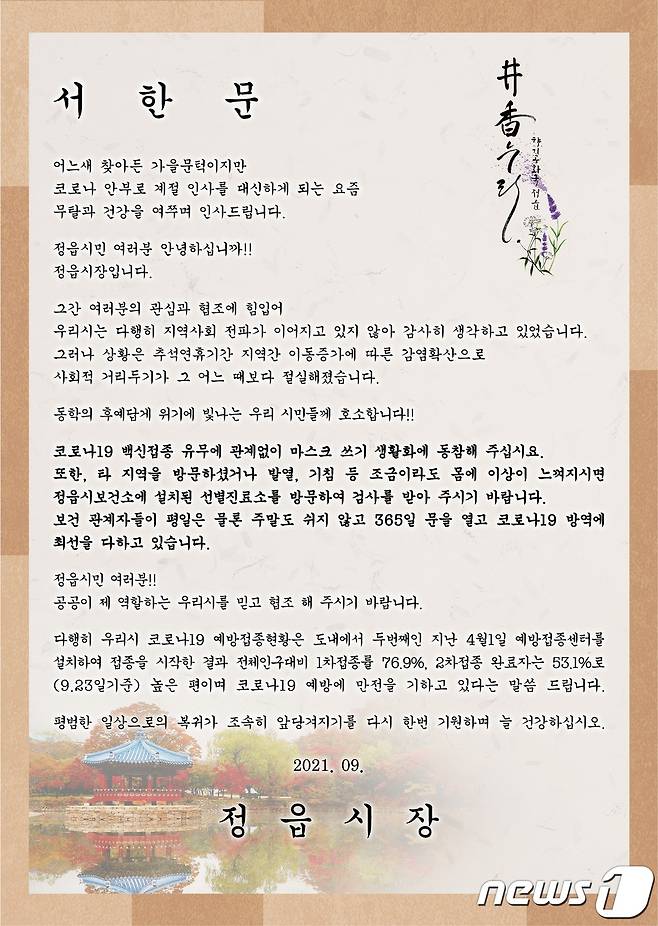 서 한 문
井香누리
향기공화국 정읍
어느새 찾아든 가을문턱이지만
코로나 안부로 계절 인사를 대신하게 되는 요즘
무탈과 건강을 여쭈며 인사드립니다.
정읍시민 여러분 안녕하십니까!!
정읍시장입니다.
그간 여러분의 관심과 협조에 힘입어
우리시는 다행히 지역사회 전파가 이어지고 있지 않아 감사히 생각하고 있었습니다.
그러나 상황은 추석연휴기간 지역간 이동증가에 따른 감염확산으로
사회적 거리두기가 그 어느 때보다 절실해졌습니다.
동학의 후예답게 위기에 빛나는 우리 시민들께 호소합니다!!
코로나19 백신접종 유무에 관계없이 마스크 쓰기 생활화에 동참해 주십시요.
또한, 타 지역을 방문하셨거나 발열, 기침 등 조금이라도 몸에 이상이 느껴지시면
정읍시보건소에 설치된 선별진료소를 방문하여 검사를 받아 주시기 바랍니다.
보건 관계자들이 평일은 물론 주말도 쉬지 않고 365일 문을 열고 코로나19 방역에
최선을 다하고 있습니다.
정읍시민 여러분!!
공공이 제 역할하는 우리시를 믿고 협조 해 주시기 바랍니다.
다행히 우리시 코로나19 예방접종현황은 도내에서 두번째인 지난 4월1일 예방접종센터를
설치하여 접종을 시작한 결과 전체인구대비 1차접종률 76.9%, 2차접종 완료자는 53.1%로
(9.23일기준) 높은 편이며 코로나19 예방에 만전을 기하고 있다는 말씀 드립니다.
평범한 일상으로의 복귀가 조속히 앞당겨지기를 다시 한번 기원하며 늘 건강하십시오.
2021. 09.
정 읍 시 장
news1